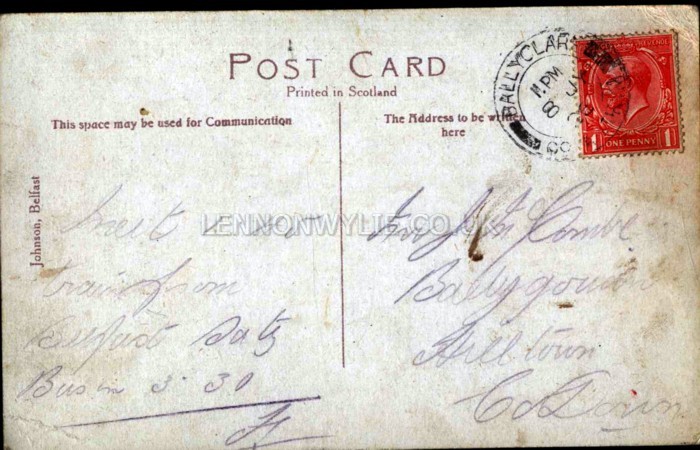 POST CARD
Printed in Scotland
This space may be used for Communication
The Address to be written
here
Johnson, Belfast
BALLYCLARE
PM
ONE PENNY
1 1
LENNONWYLIE.CO.UK
meet
train from
Belfast Saty
Bus in 3.30
Combe
Ballygowan
Hilltown
Co Down